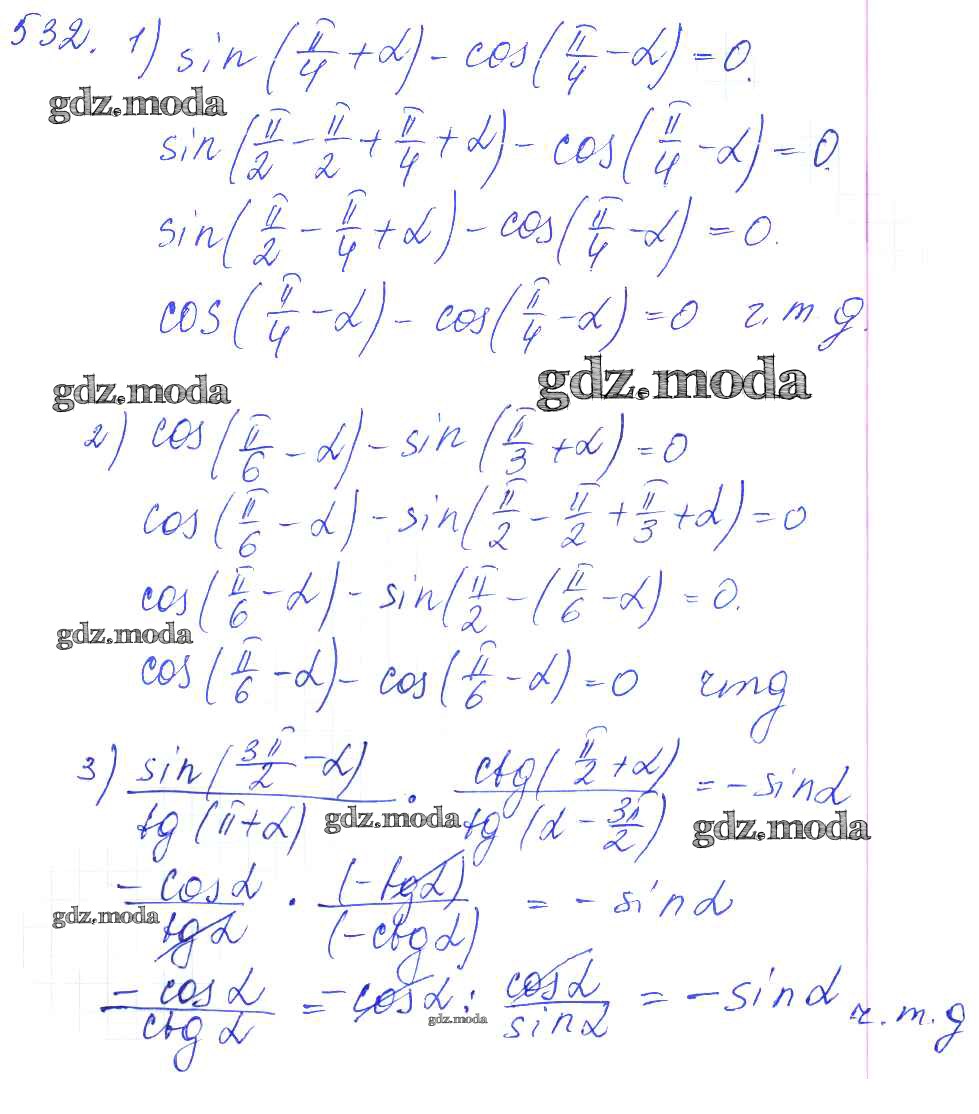 532. 1) sin(π/4 + α) - cos(π/4 - α) = 0.
gdz.moda
sin(π/2 - π/2 + π/4 + α) - cos(π/4 - α) = 0.
sin(π/2 - π/4 + α) - cos(π/4 - α) = 0.
cos(π/4 - α) - cos(π/4 - α) = 0 ч.т.д.
gdz.moda gdz.moda
2) cos(π/6 - α) - sin(π/3 + α) = 0
cos(π/6 - α) - sin(π/2 - π/2 + π/3 + α) = 0
cos(π/6 - α) - sin(π/2 - (π/6 - α) = 0.
gdz.moda
cos(π/6 - α) - cos(π/6 - α) = 0 чтд
3) sin(3π/2 - α)/tg(π + α) · ctg(π/2 + α)/tg(α - 3π/2) = - sinα
gdz.moda gdz.moda
-cosα/tgα · (-tgα)/(-ctgα) = - sinα
gdz.moda
-cosα/ctgα = -cosα : cosα/sinα = - sinα ч.т.д
gdz.moda